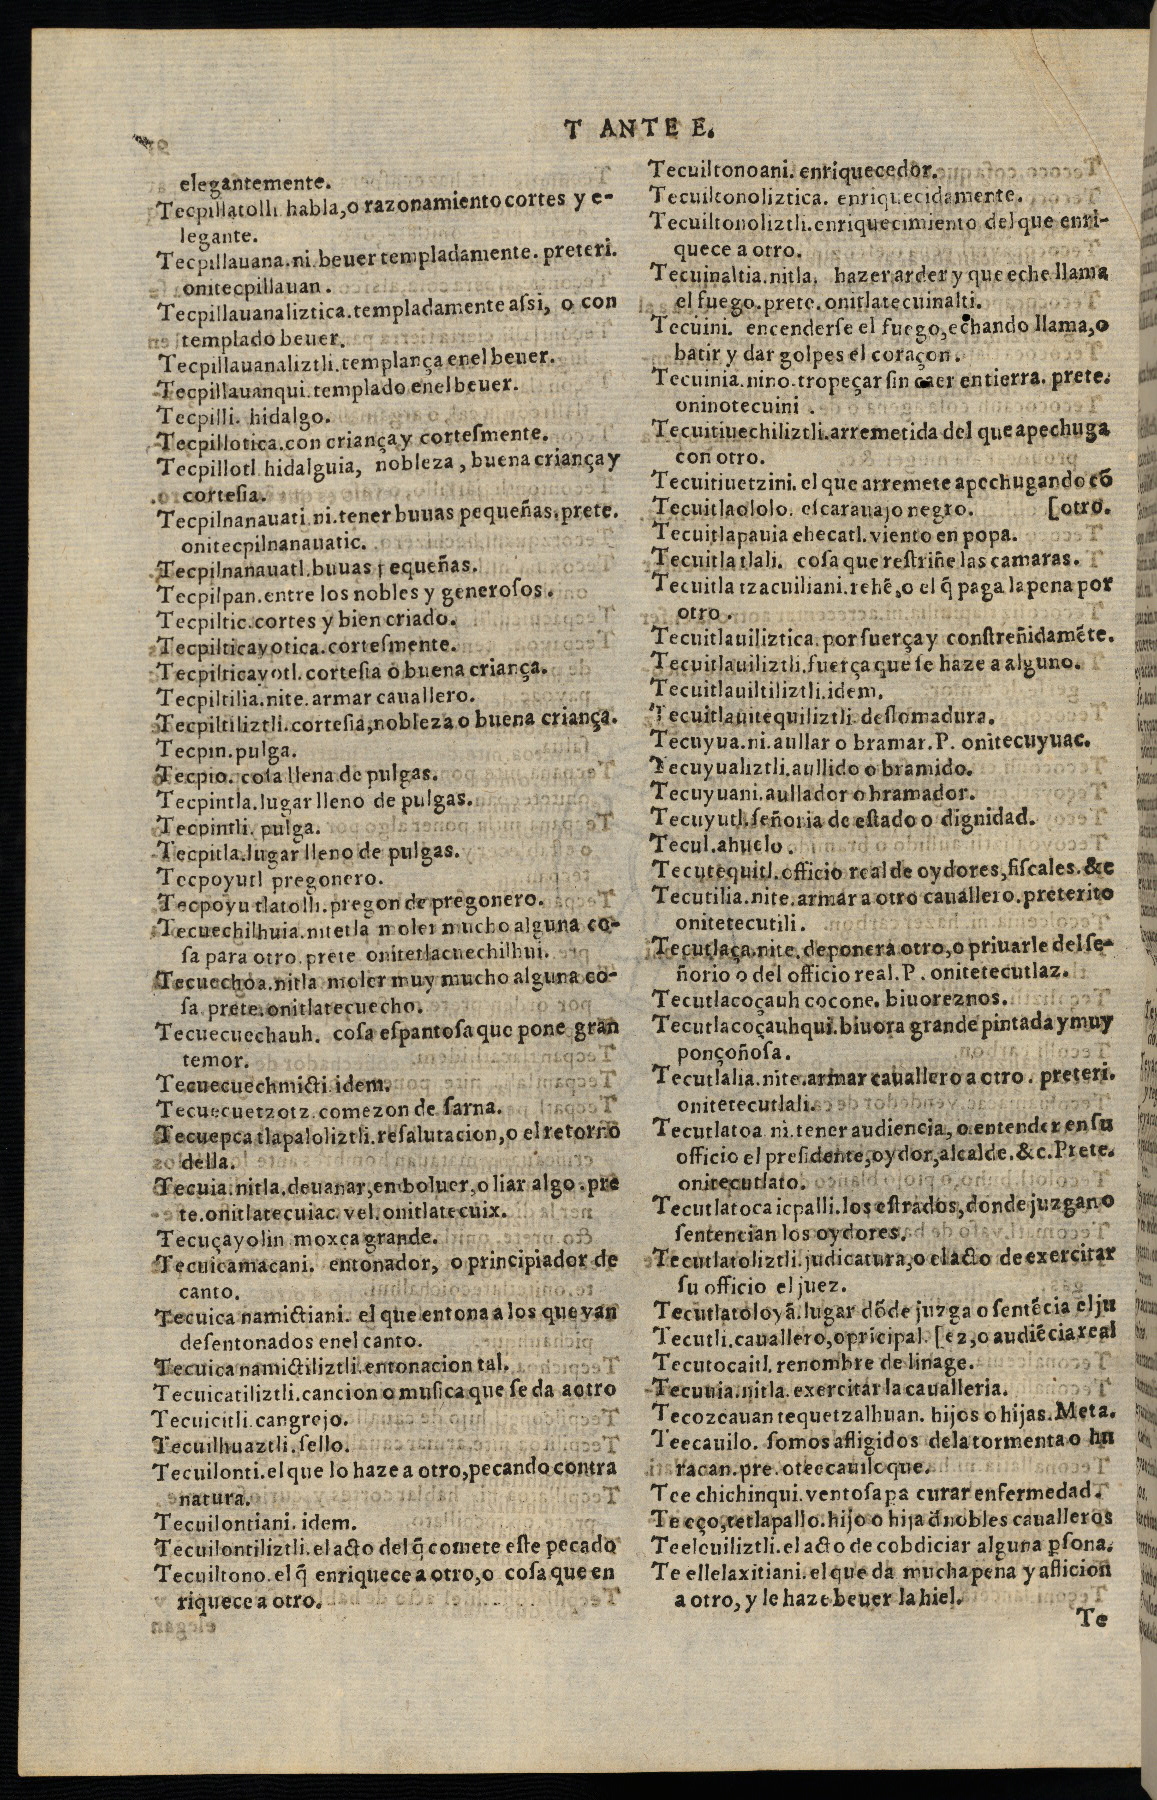 T ANTE E.
elegantemente.
Tecpillatolli habla,o razonamiento cortes y e-
legante.
Tecpillauana.ni.beuer templadamente. preteri.
onitecpillauan.
Tecpillauanaliztica.templadamente aſsi, o con
templado beuer.
Tecpillauanaliztli.templança enel beuer.
Tecpillauanqui.templado enel beuer.
Tecpilli. hidalgo.
Tecpillotica.con criança y corteſmente.
Tecpillotl hidalguia, nobleza, buena criança y
corteſia.
Tecpilnanauati.ni.tener buuas pequeñas.prete.
onitecpilnanauatic.
Tecpilnanauatl.buuas pequeñas.
Tecpilpan.entre los nobles y generoſos.
Tecpiltic.cortes y bien criado.
Tecpilticayotica.corteſmente.
Tecpilticayotl.corteſia o buena criança.
Tecpiltilia.nite.armar cauallero.
Tecpiltiliztli.corteſia,nobleza o buena criança.
Tecpin.pulga.
Tecpio. coſa llena de pulgas.
Tecpintla.lugar lleno de pulgas.
Tecpintli. pulga.
Tecpitla.lugar lleno de pulgas.
Tecpoyutl pregonero.
Tecpoyu tlatolli.pregon de pregonero.
Tecuechilhuia.nitetla moler mucho alguna co-
ſa para otro.prete onitetlacuechilhui.
Tecuechoa.nitla moler muy mucho alguna co-
ſa prete.onitlatecuecho.
Tecuecuechauh. coſa eſpantoſa que pone gran
temor.
Tecuecuechmicti.idem.
Tecuecuetzotz.comezon de ſarna.
Tecuepca tlapaloliztli.reſalutacion,o el retorño
della.
Tecuia.nitla.deuanar,emboluer,o liar algo.pre
te.onitlatecuiac.vel.onitlatecuix.
Tecuçayolin moxca grande.
Tecuicamacani. entonador, o principiador de
canto.
Tecuica namictiani. el que entona a los que van
deſentonados enel canto.
Tecuica namictiliztli.entonacion tal.
Tecuicatiliztli.cancion o muſica que ſe da aotro
Tecuicitli.cangrejo.
Tecuilhuaztli.ſello.
Tecuilonti.el que lo haze a otro,pecando contra
natura.
Tecuilontiani. idem.
Tecuilontiliztli.el acto del q̃ comete eſte pecado
Tecuiltono.el q̃ enriquece a otro,o coſa que en
riquece a otro.
Tecuiltonoani. enriquecedor.
Tecuiltonoliztica. enriquecidamente.
Tecuiltonoliztli.enriquecimiento del que enri-
quece a otro.
Tecuinaltia.nitla. hazer arder y que eche llama
el fuego.prete.onitlatecuinalti.
Tecuini. encenderſe el fuego,echando llama,o
batir y dar golpes el coraçon.
Tecuinia.nino.tropeçar ſin caer en tierra. prete.
oninotecuini .
Tecuitiuechiliztli.arremetida del que apechuga
con otro.
Tecuitiuetzini.el que arremete apechugando cõ
Tecuitlaololo. eſcarauajo negro. [otro.
Tecuitlapauia ehecatl.viento en popa.
Tecuitla tlali. coſa que reſtriñe las camaras.
Tecuitla tzacuiliani.rehẽ,o el q̃ paga la pena por
otro.
Tecuitlauiliztica.por fuerça y conſtreñidamẽte.
Tecuitlauiliztli.fuerça que ſe haze a alguno.
Tecuitlauiltiliztli.idem.
Tecuitlauitequiliztli.deſlomadura.
Tecuyua.ni.aullar o bramar.P. onitecuyuac.
Tecuyualiztli.aullido o bramido.
Tecuyuani.aullador o bramador.
Tecuyutl.ſeñoria de eſtado o dignidad.
Tecul.abuelo.
Tecutequitl.officio real de oydores,fiſcales.&c
Tecutilia.nite.armar a otro cauallero.preterito
onitetecutili.
Tecutlaça.nite.deponer a otro,o priuarle del ſe-
ñorio o del officio real.P. onitetecutlaz.
Tecutlacoçauh cocone. biuoreznos.
Tecutlacoçauhqui.biuora grande pintada y muy
ponçoñoſa.
Tecutlalia.nite.armar cauallero a otro. preteri.
onitetecutlali.
Tecutlatoa ni.tener audiencia, o entender en ſu
officio el preſidente,oydor,alcalde.&c.Prete.
onitecutlato.
Tecutlatoca icpalli.los eſtrados,donde juzgan o
ſentencian los oydores.
Tecutlatoliztli.judicatura,o el acto de exercitar
ſu officio el juez.
Tecutlatoloyã.lugar dõde juzga o ſentẽcia el ju
Tecutli.cauallero,o pricipal. [ez,o audiẽcia real
Tecutocaitl.renombre de linage.
Tecuuia.nitla.exercitar la caualleria.
Tecozcauan tequetzalhuan. hijos o hijas.Meta.
Teecauilo. ſomos afligidos dela tormenta o hu
racan.pre.oteecauiloque.
Tee chichinqui.ventoſa pa curar enfermedad.
Te eço,tetlapallo.hijo o hija d̃ nobles caualleros
Teelcuiliztli.el acto de cobdiciar alguna pſona.
Te ellelaxitiani.el que da mucha pena y aflicion
a otro, y le haze beuer la hiel.
Te